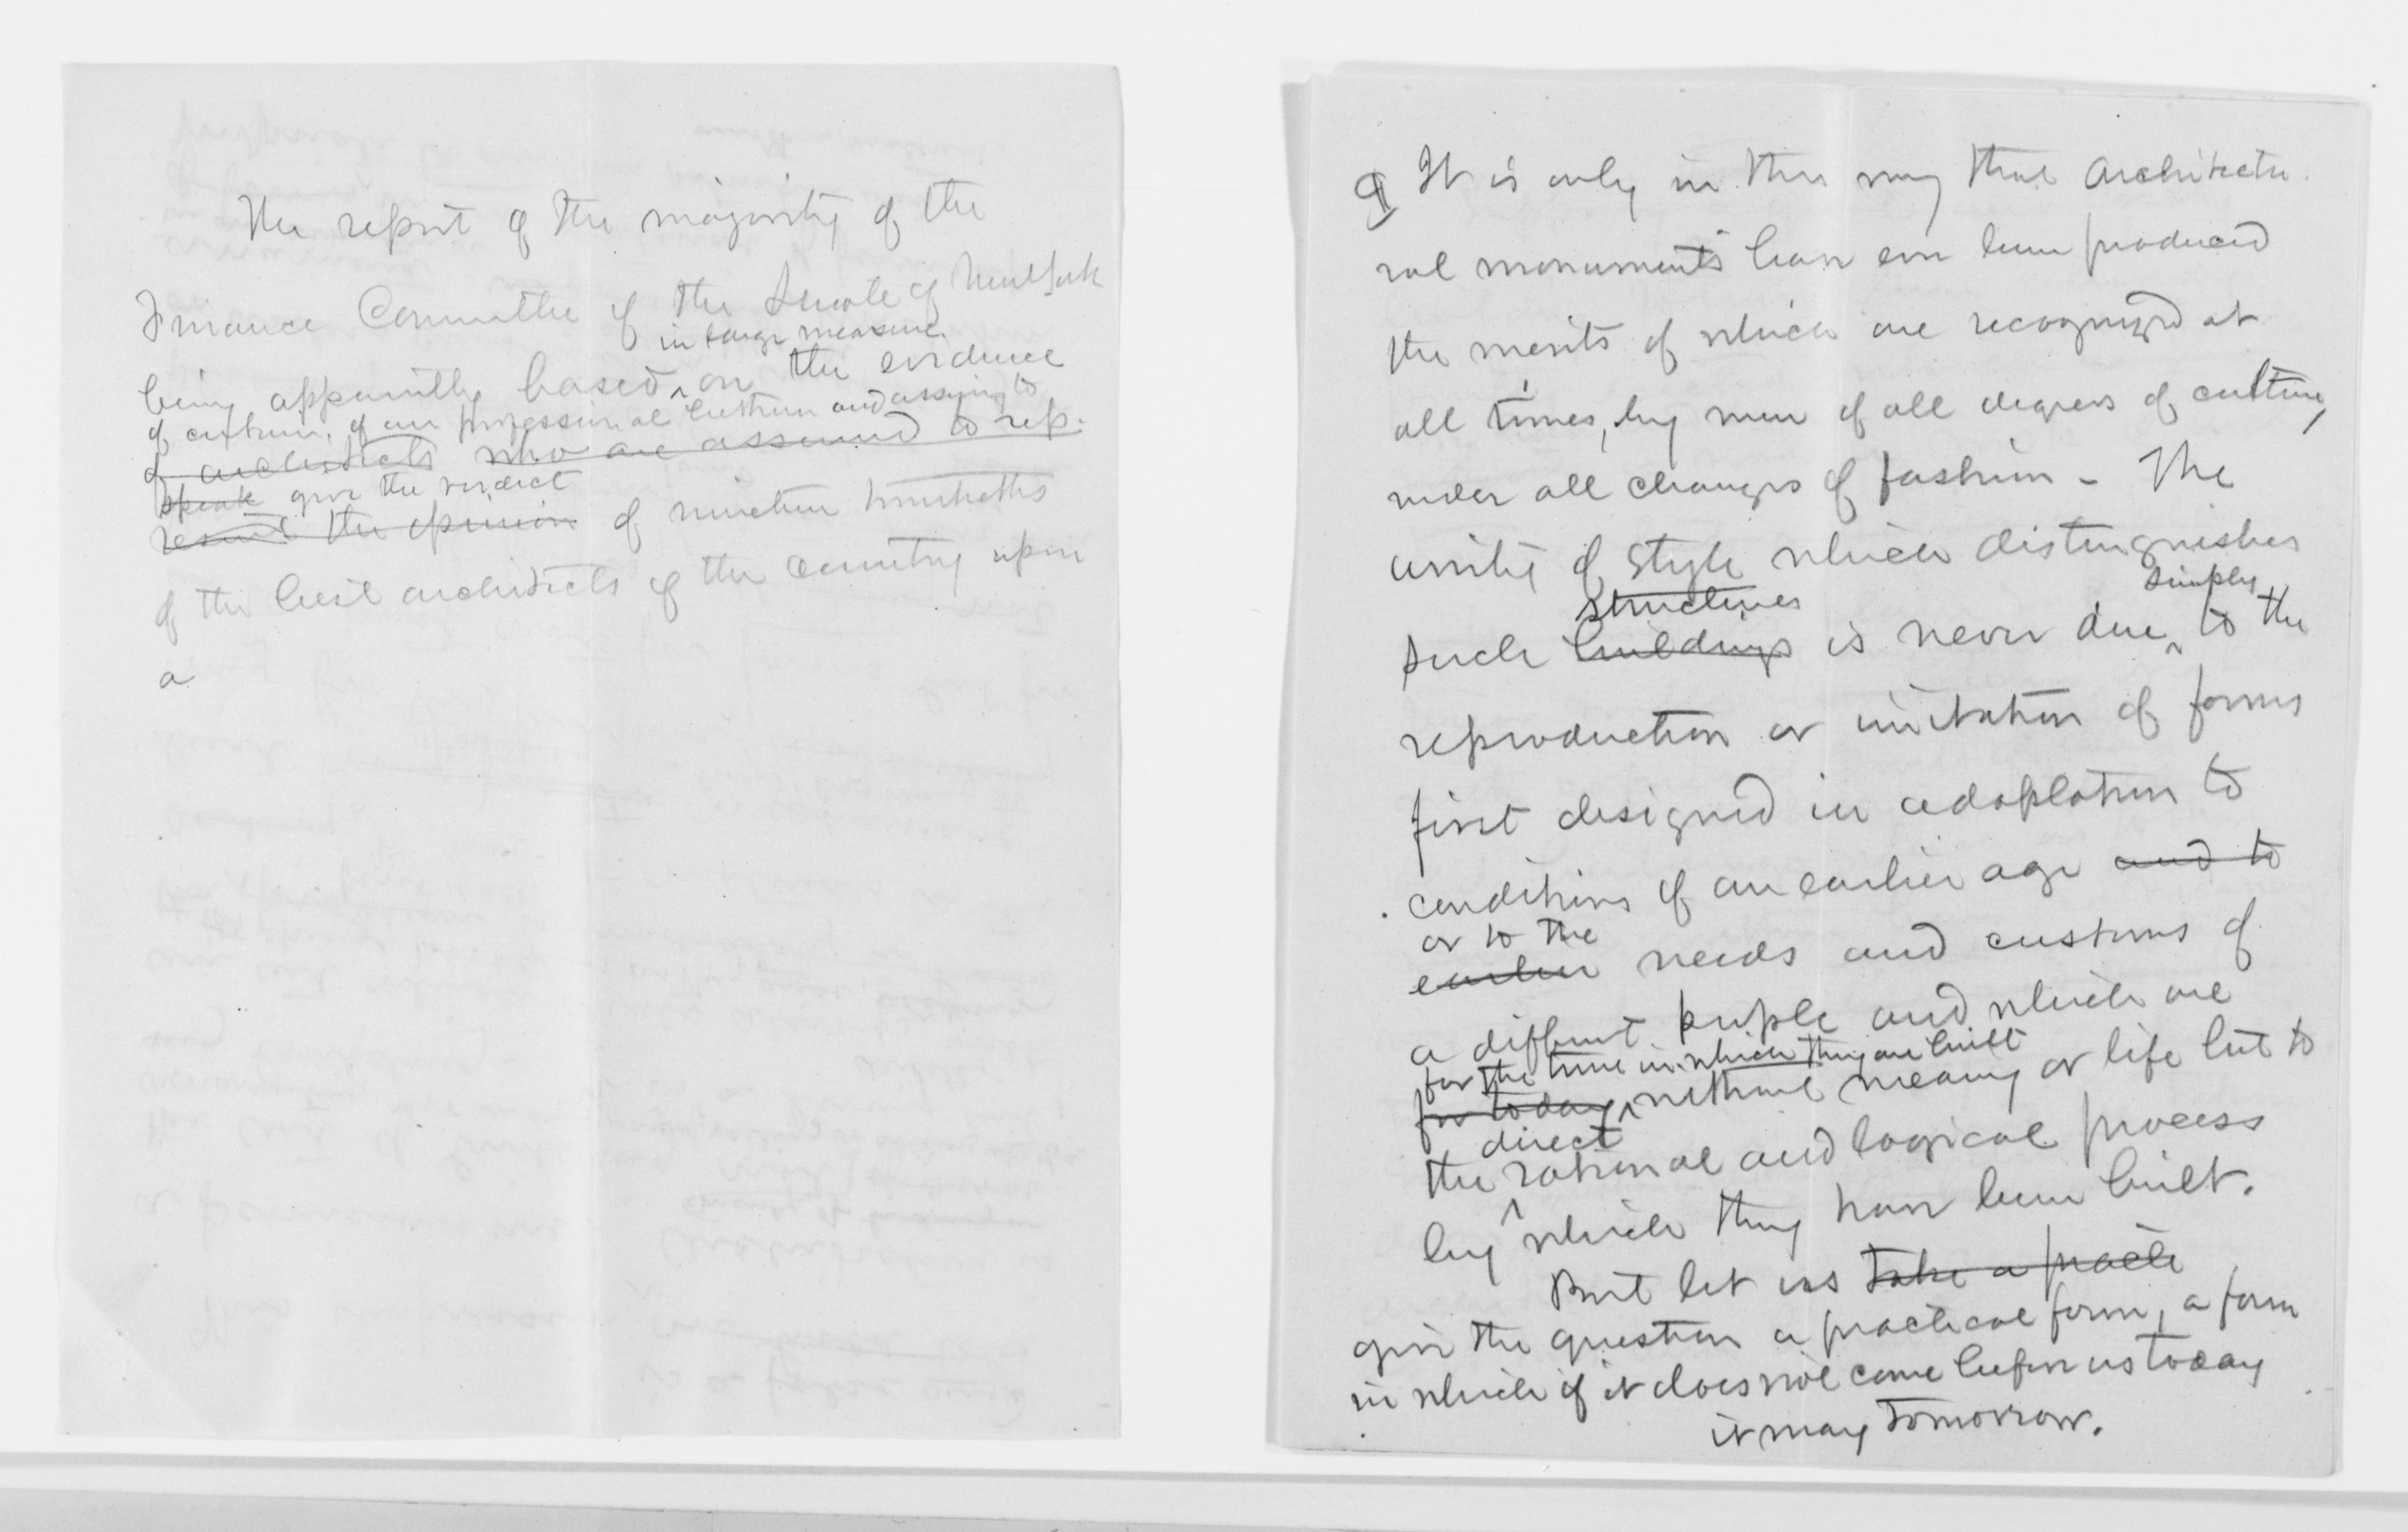 The report of the majority of the
Finance Committee of the Senate of New York
in large measure
being apparently based on the evidence
of certain of our professional brethren and assuming to
of architects who are assumed to rep-
speak give the verdict
resent the opinion of nineteen twentieths
of the best architects of the country upon
a
¶ It is only in this way that architectu
ral monuments have ever been produced
the merits of which are recognized at
all times, by men of all degrees of culture,
under all changes of fashion - The
unity of style which distinguishes
structures simply
such buildings is never due to the
reproduction or imitation of forms
first designed in adaptation to
conditions of an earlier age and to
or to the
earlier needs and customs of
a different people and which are
for the time in which they are built
for today, without meaning or life but to
direct
the rational and logical process
by which they have been built.
But let us take a practi
give the question a practical form, a form
in which if it does not come before us today
it may tomorrow.